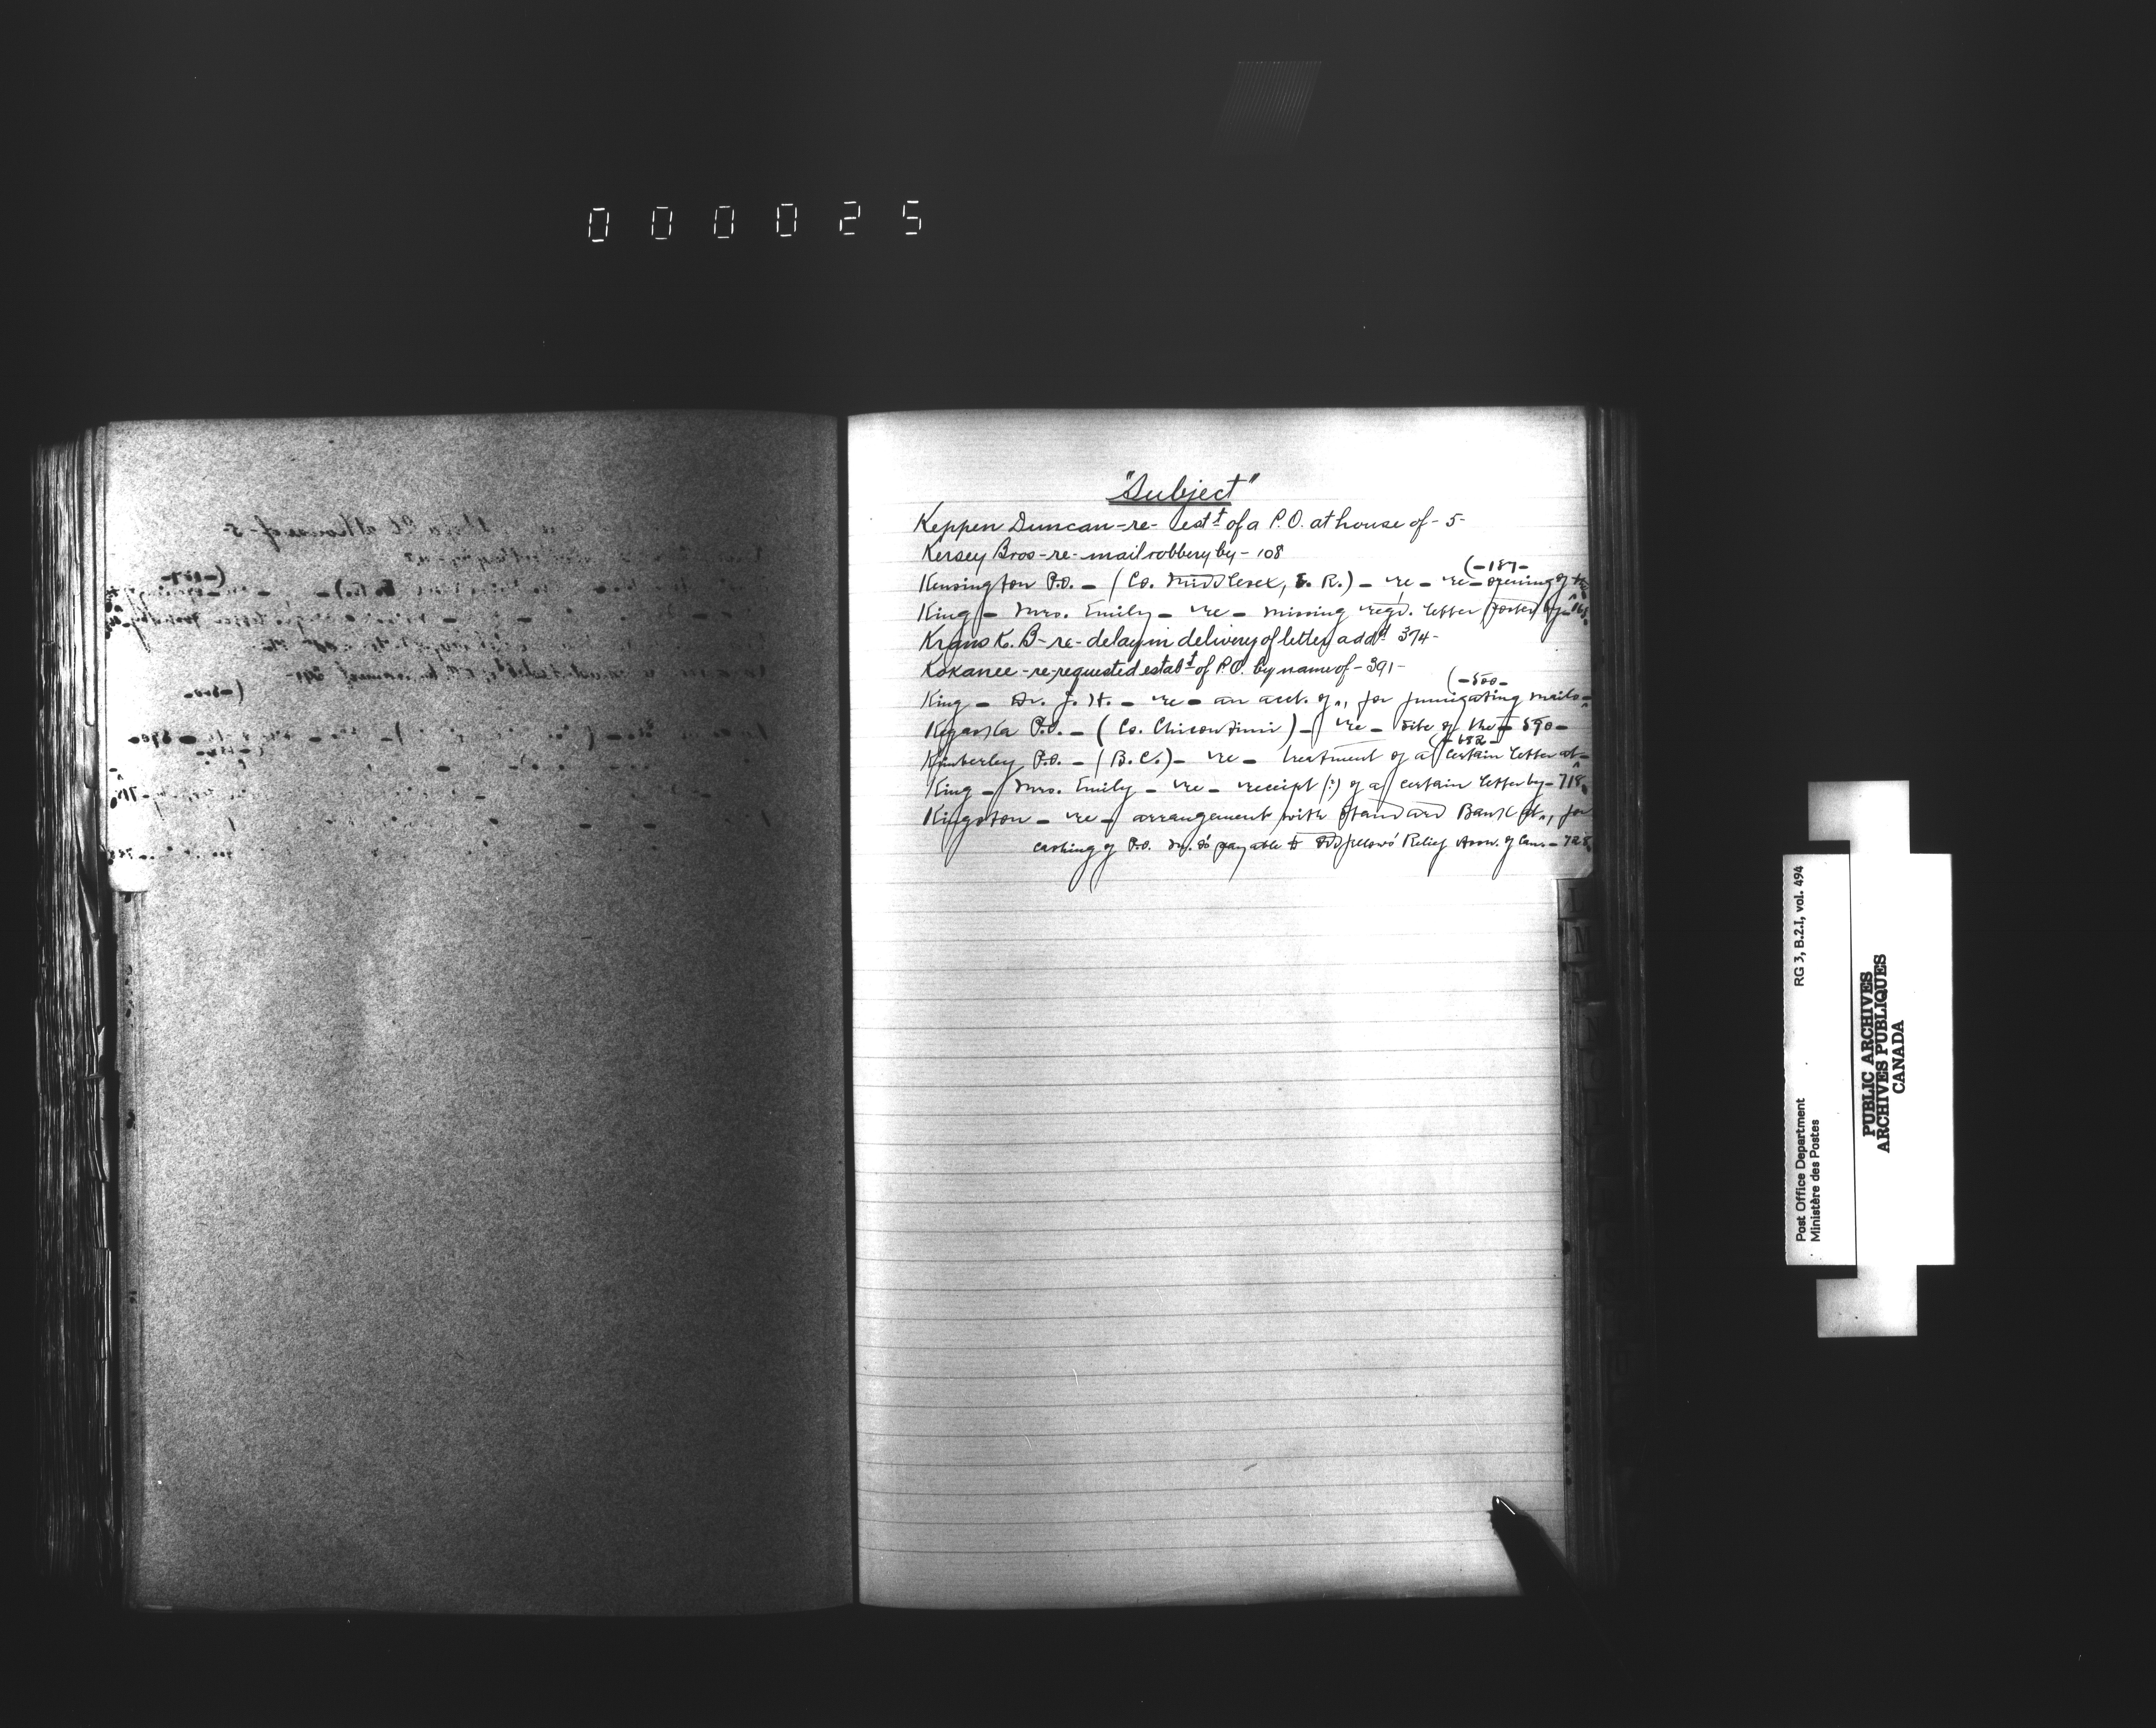 000025
"Subject"
Keppen Duncan - re - estt of a P.O. at house of - 5 -
Kersey Bros - re - mail robbery by - 108
(- 187 -
Kensington P.O. - (Co. Middlesex, E. R.) - re - re-opening of
King - Mrs. Emily - re - missing regd. letter posted by
Krans K. B - re - delay in delivery of letter addd 374 -
Kokanee - re - requested estabt of P.O. by name of - 391 -
(- 500 -
King - Dr. J. H. - re - an acct. of, for fumigating mails -
Kegaska P.O. - (Co. Chicoutimi) - re - site of the - 590 -
(- 682 -
Kimberley P.O. - (B.C.) - re - treatment of a certain letter at -
King - Mrs. Emily - re - receipt (?) of a certain letter by - 718
Kingston - re - arrangement with Standard Bank at, for
cashing of P.O. M.O's payable to Oddfellows' Relief Assn. of Can. - 728
L
M
N
RG 3, B.2.I, vol. 494
Post Office Department
Ministère des Postes
PUBLIC ARCHIVES
ARCHIVES PUBLIQUES
CANADA